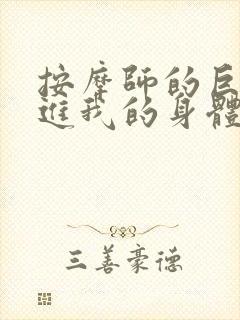 按摩師的巨
進我的身體
三善豪德